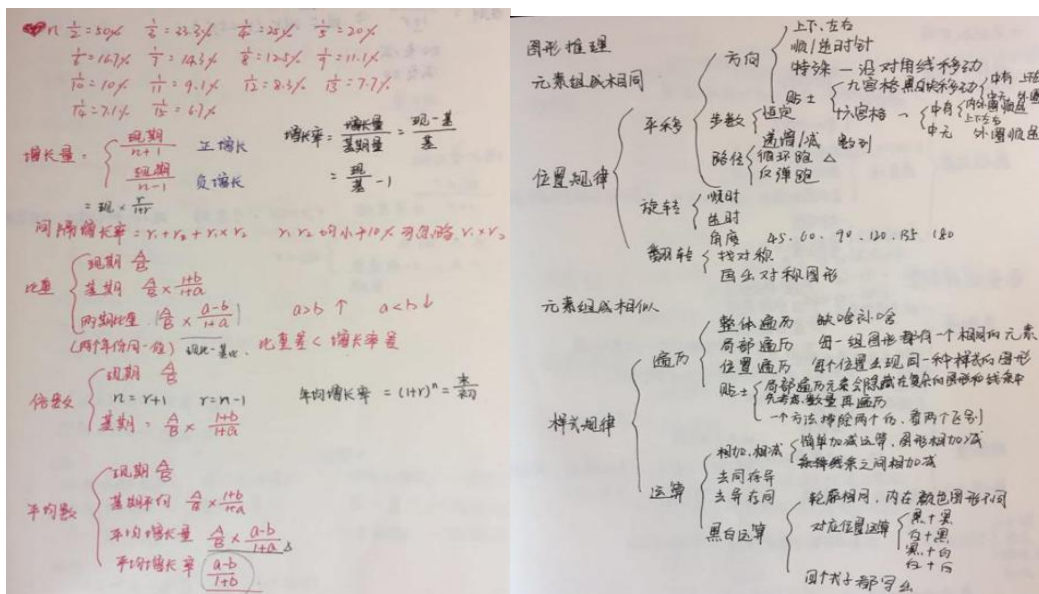 n 1/2=50% 1/3=33.3% 1/4=25% 1/5=20%
1/6=16.7% 1/7=14.3% 1/8=12.5% 1/9=11.1%
1/10=10% 1/11=9.1% 1/12=8.3% 1/13=7.7%
1/14=7.1% 1/15=6.7%
增长量= 现期/n+1 正增长
现期/n-1 负增长
=现×r/1+r
增长率=增长量/基期量=现-基/基
=现/基-1
间隔增长率=r₁+r₂+r₁×r₂ r₁ r₂均小于10% 可忽略r₁×r₂
比重
现期 A/B
基期 A/B×1+b/1+a
两期比重 A/B×a-b/1+a a>b ↑ a<b ↓
比重差<增长率差
倍数
现期 A/B
n=r+1 r=n-1
基期=A/B×1+b/1+a
年均增长率 =(1+r)ⁿ=
平均数
现期 A/B
基期平均 A/B×1+b/1+a
平均增长量 A/B×a-b/1+a
平均增长率 a-b/1+b
图形推理
元素组成相同
位置规律
平移
方向
上下、左右
顺/逆时针
特殊—沿对角线移动
贴士
九宫格黑块移动
十六宫格
中有 内外圈顺逆
上下左右
中无 外圈顺逆
步数
恒定
递增/减 数列
路径
循环跑
反弹跑
旋转
顺时
逆时
角度 45、60、90、120、135 180
翻转
找对称
画出对称图形
元素组成相似
样式规律
遍历
整体遍历 缺啥补啥
局部遍历 每一组图形都有一个相同的元素
位置遍历 每个位置出现同一种样式的图形
贴士
局部遍历元素会隐藏在复杂的图形和线条中
先考虑数量再遍历
一个方法排除两个的,看两个区别
运算
相加、相减
简单加减运算、图形相加减
线条之间相加减
去同存异
去异存同
黑白运算
轮廓相同,内在颜色图形不同
对应位置运算
黑+黑
白+黑
黑+白
白+白
四个式子都写出